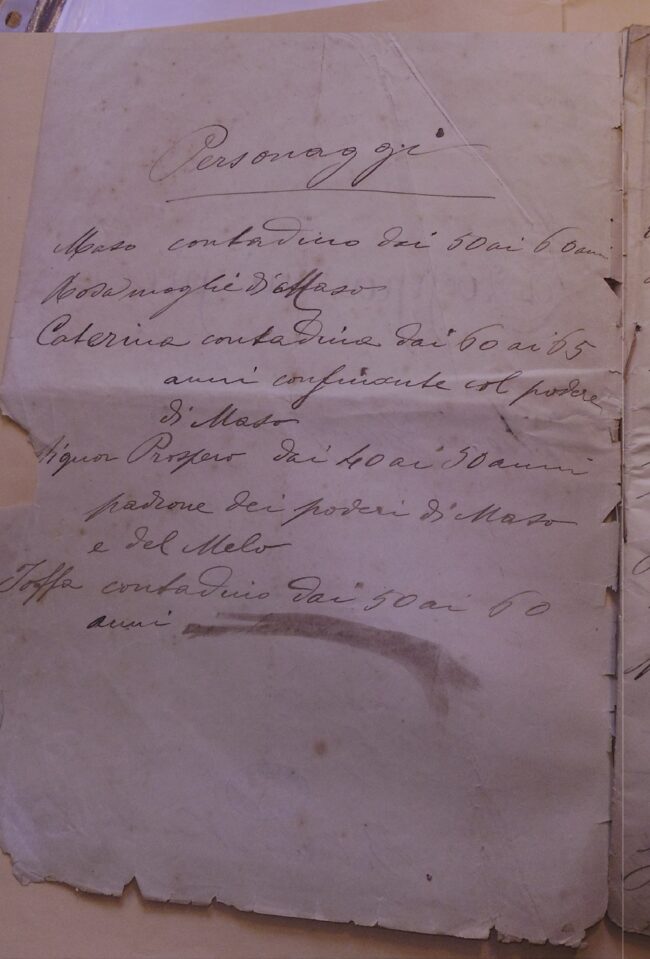 Personaggi
Maso contadino dai 50 ai 60 anni
Rosa moglie di Maso
Caterina contadina dai 60 ai 65
anni confinante col podere
di Maso
Signor Prospero dai 40 ai 50 anni
padrone dei poderi di Maso
e del Melo
contadino dai 50 ai 60
anni